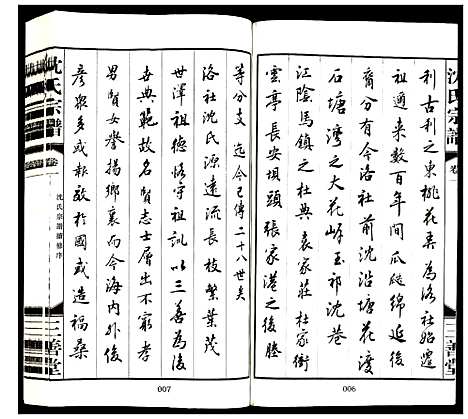 沈氏宗譜
卷一
三善堂
利古利之東桃花弄為洛社始遷
祖通来数百年间瓜瓞绵延後
裔分有今洛社前沈沿塘花渡
石塘湾之大花峰玉祁沈巷
江陰馬鎮之杜典袁家莊杜家衖
雲亭長安垻頭張家港之後塍
006
等分支迄今已傳二十八世矣
洛社沈氏源遠流長枝繁葉茂
世澤祖德恪守祖訓以三善為後
世典範故名賢志士層出不窮孝
男賢女譽揚鄉裏而今海内外俊
彦衆多或報效於國或造福桑
007
沈氏宗譜
卷一
沈氏宗譜續修序
三善堂